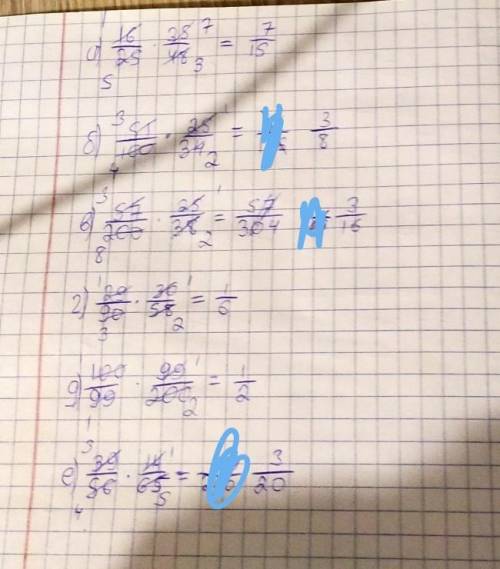 а) 16/25 · 35/48 = 7/15
б) 51/100 · 25/34 = 3/8
в) 57/200 · 25/38 = 57/304 3/16
г) 29/90 · 30/58 = 1/6
д) 100/99 · 99/200 = 1/2
е) 39/56 · 14/65 = 3/20